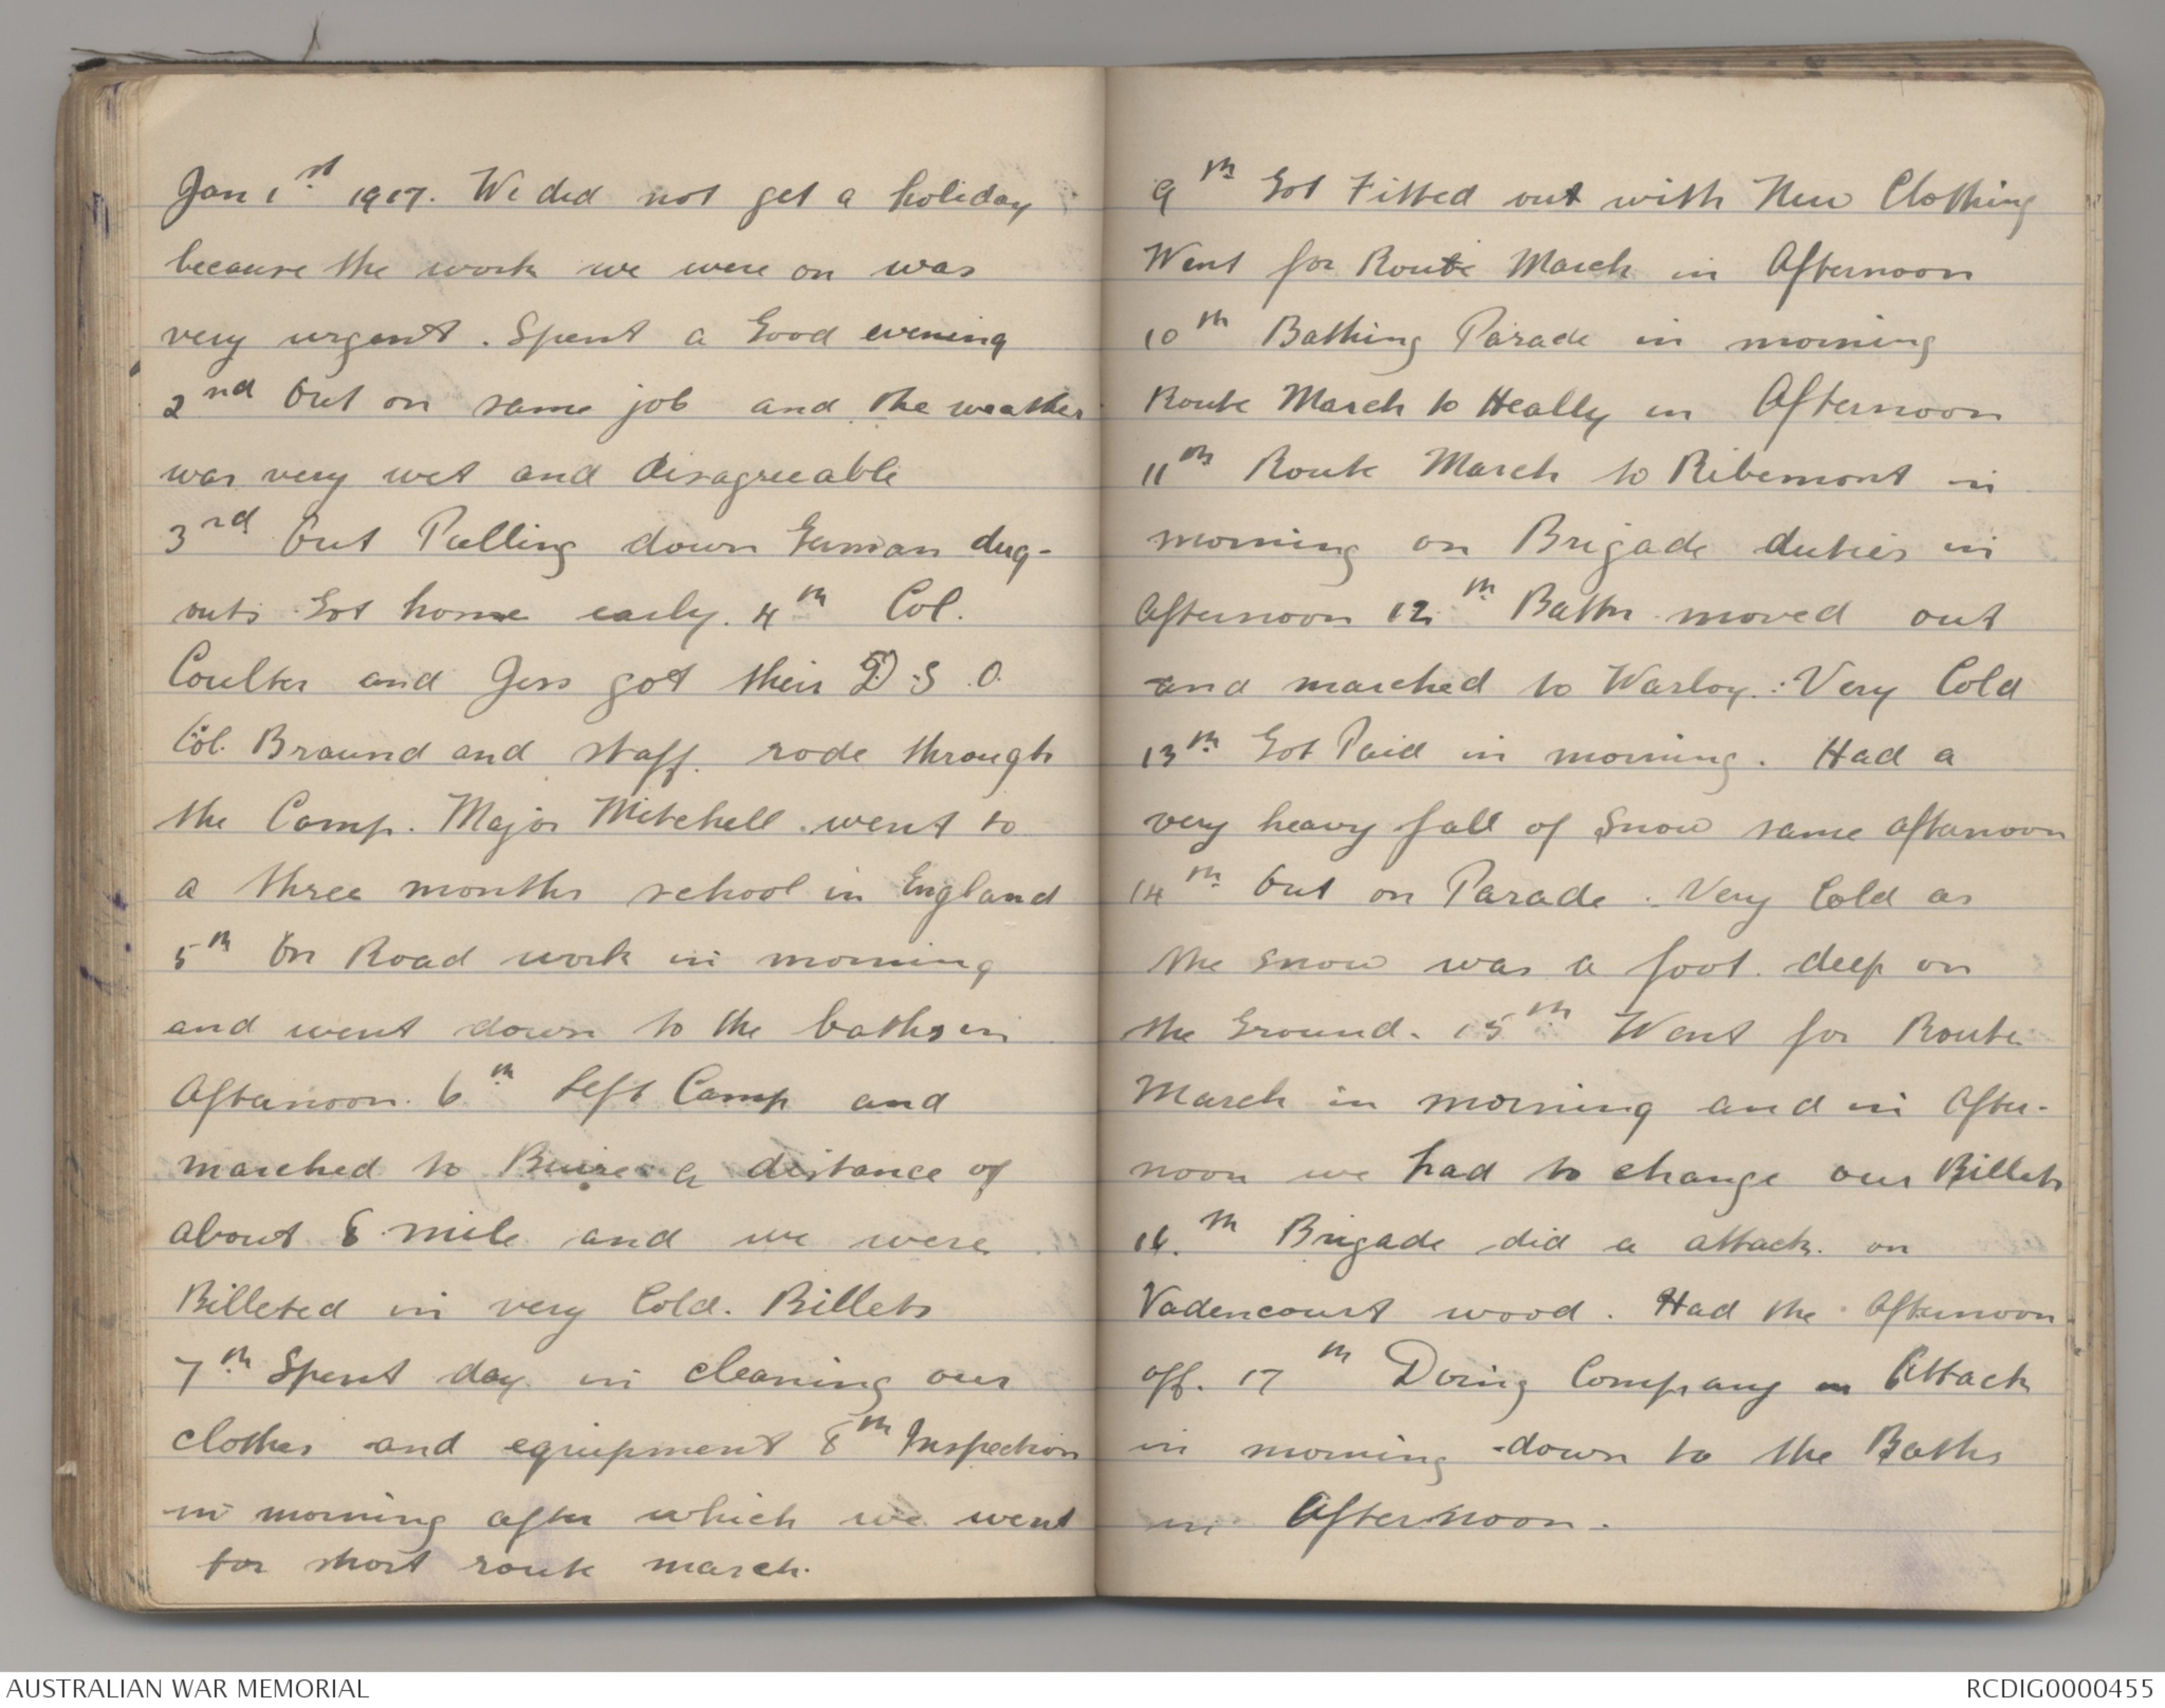 Jan 1st 1917. We did not get a holiday
because the work we were on was
very urgent. Spent a Good evening
2nd Out on same job and the weather
was very wet and disagreeable
3rd Out Pulling down German dug-
outs Got home early. 4th Col.
Coulter and Jess got their D.S.O.
Col. Braund and staff. rode through
the Camp. Major Mitchell went to
a three months school in England
5th On Road work in morning
and went down to the baths in
Afternoon. 6th Left Camp and
marched to Buire a distance of
about 8 mile and we were
Billeted in very Cold. Billets
7th Spent day in cleaning our
clothes and equipment 8th Inspection
in morning after which we went
for short route march.
9th Got Fitted out with New Clothing
Went for Route March in Afternoon
10th Bathing Parade in morning
Route March to Heally in Afternoon
11th Route March to Ribemont in
morning on Brigade duties in
Afternoon 12th Battn moved out
and marched to Warloy. Very Cold
13th Got Paid in morning. Had a
very heavy fall of Snow same afternoon
14th Out on Parade. Very Cold as
the snow was a foot deep on
the Ground. 15th Went for Route
March in morning and in After-
noon we had to change our Billets
16.th Brigade did a attack on
Vadencourt wood. Had the Afternoon
off. 17th Doing Company in Attack
in morning down to the Baths
in Afternoon.
AUSTRALIAN WAR MEMORIAL
RCDIG0000455